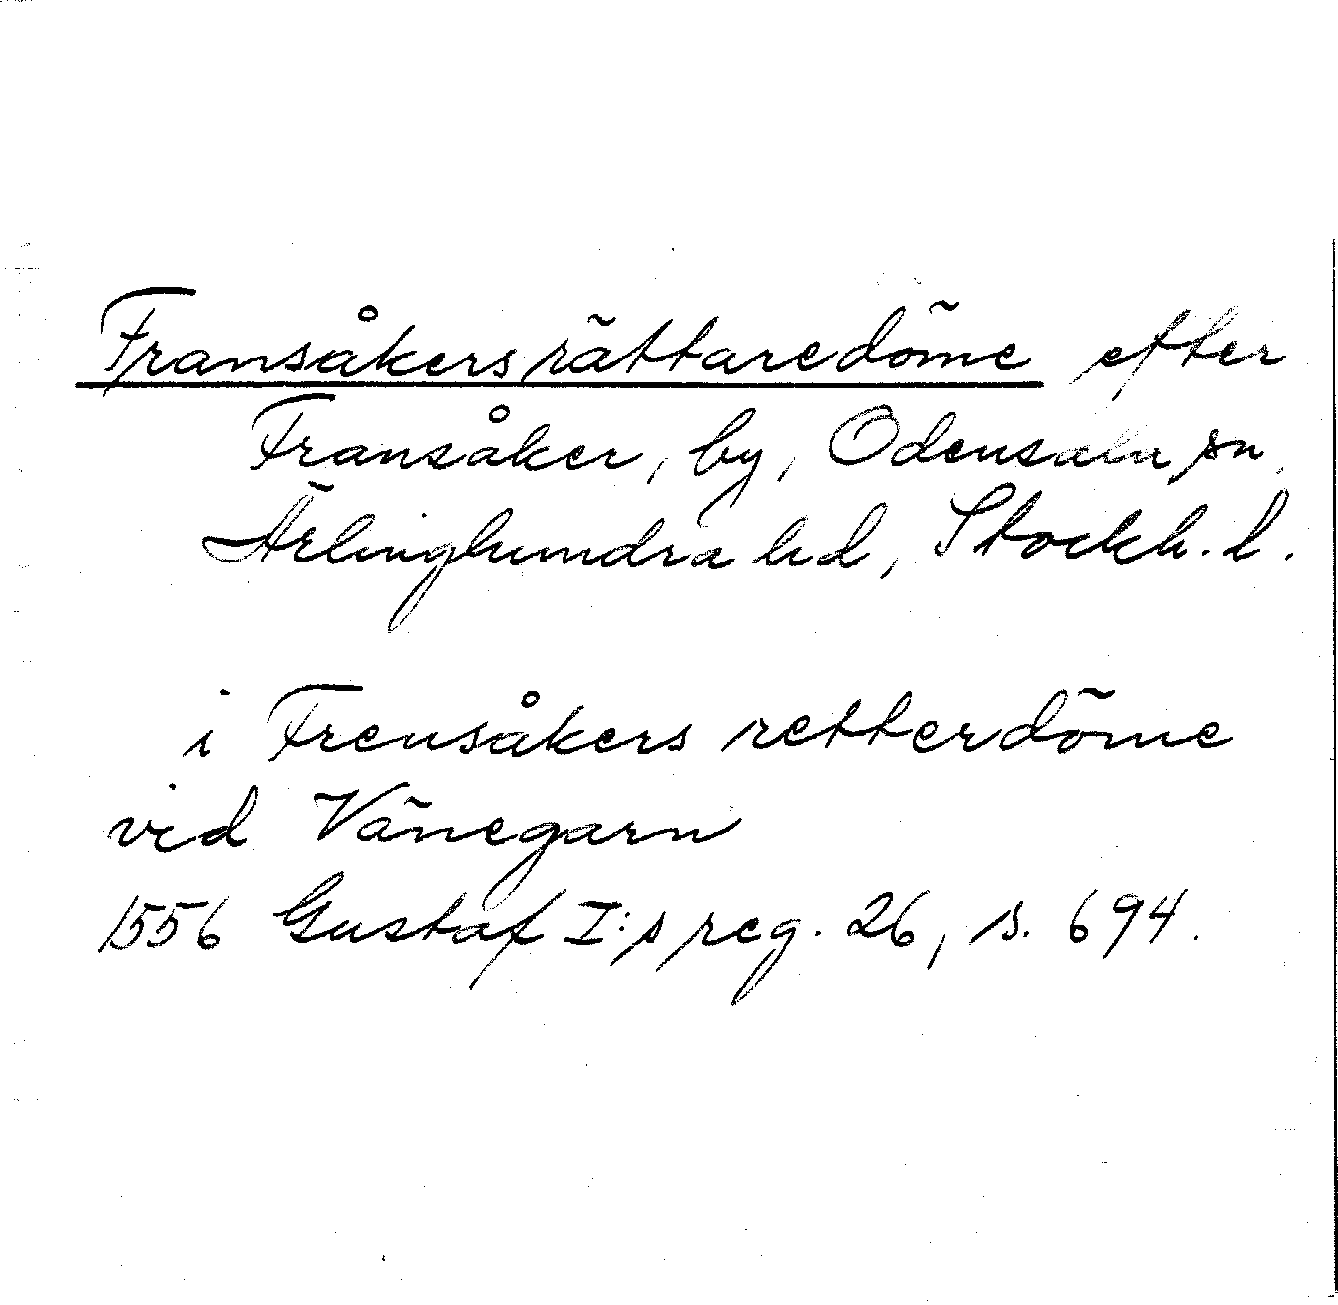 Fransåkers rättaredöme efter
Fransåker, by, Odensala sn,
Ärlinghundra hd, Stockh. l.
i Frensåkers retterdöme
vid Vänegarn
1556 Gustaf I:s reg. 26, s. 694.